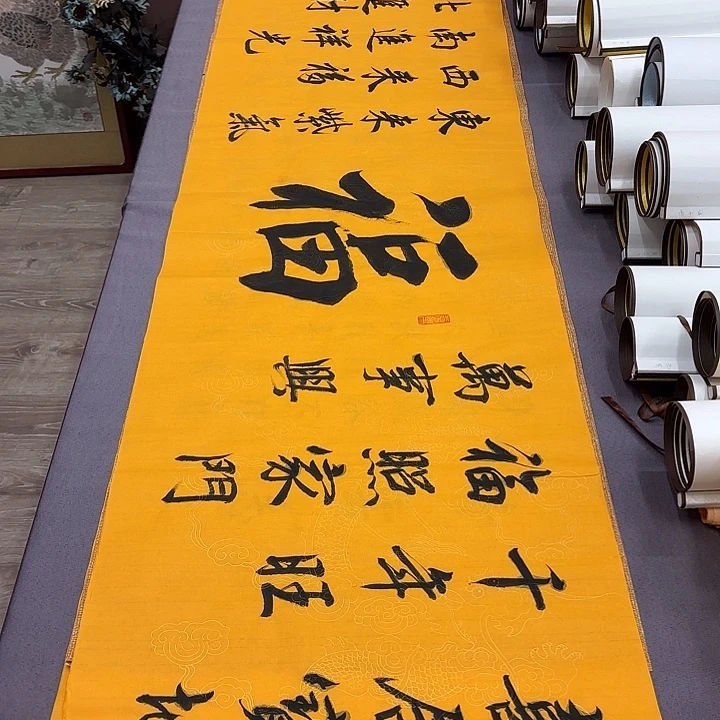 喜居寶地
千年旺
福照家門
萬事興
福
東來紫氣
西來福
南進祥光
北